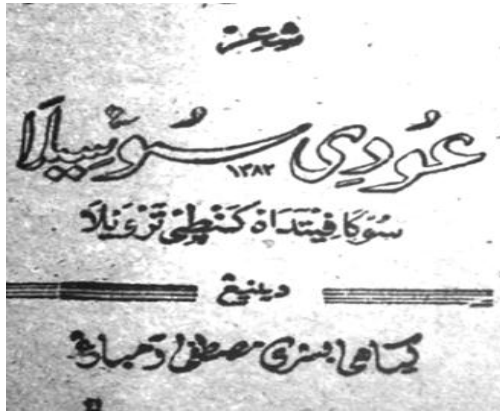 شعر
عُودِي سُوسِيلَا
١٣٨٢
سُوكَا فِيتَدَاه كَنْطِي تَرْوَيلَا
دينيڠ
كياهي بسري مصطفى رمباڠ